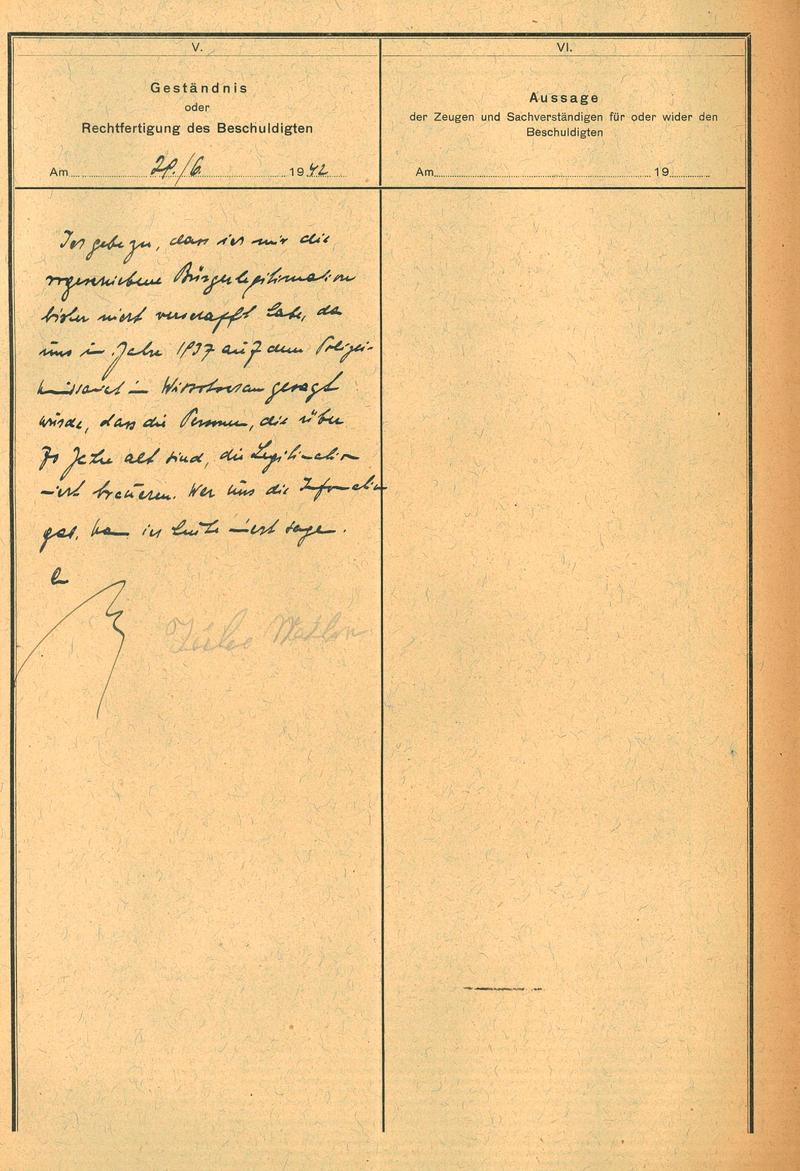 V.
Geständnis
oder
Rechtfertigung des Beschuldigten
Am 29./6. 1942
Ich gebe zu, dass ich mir die
vorgeschriebene Bürgerlegitimation
bisher nicht verschafft habe, da
uns im Jahre 1937 auf dem Polizei-
kommissariat in gesagt
wurde, dass die Personen, die über
Jahre alt sind, die Legitimation
nicht brauchen. Wer uns die Information
gab, kann ich heute nicht sagen.
VI.
Aussage
der Zeugen und Sachverständigen für oder wider den
Beschuldigten
Am 19